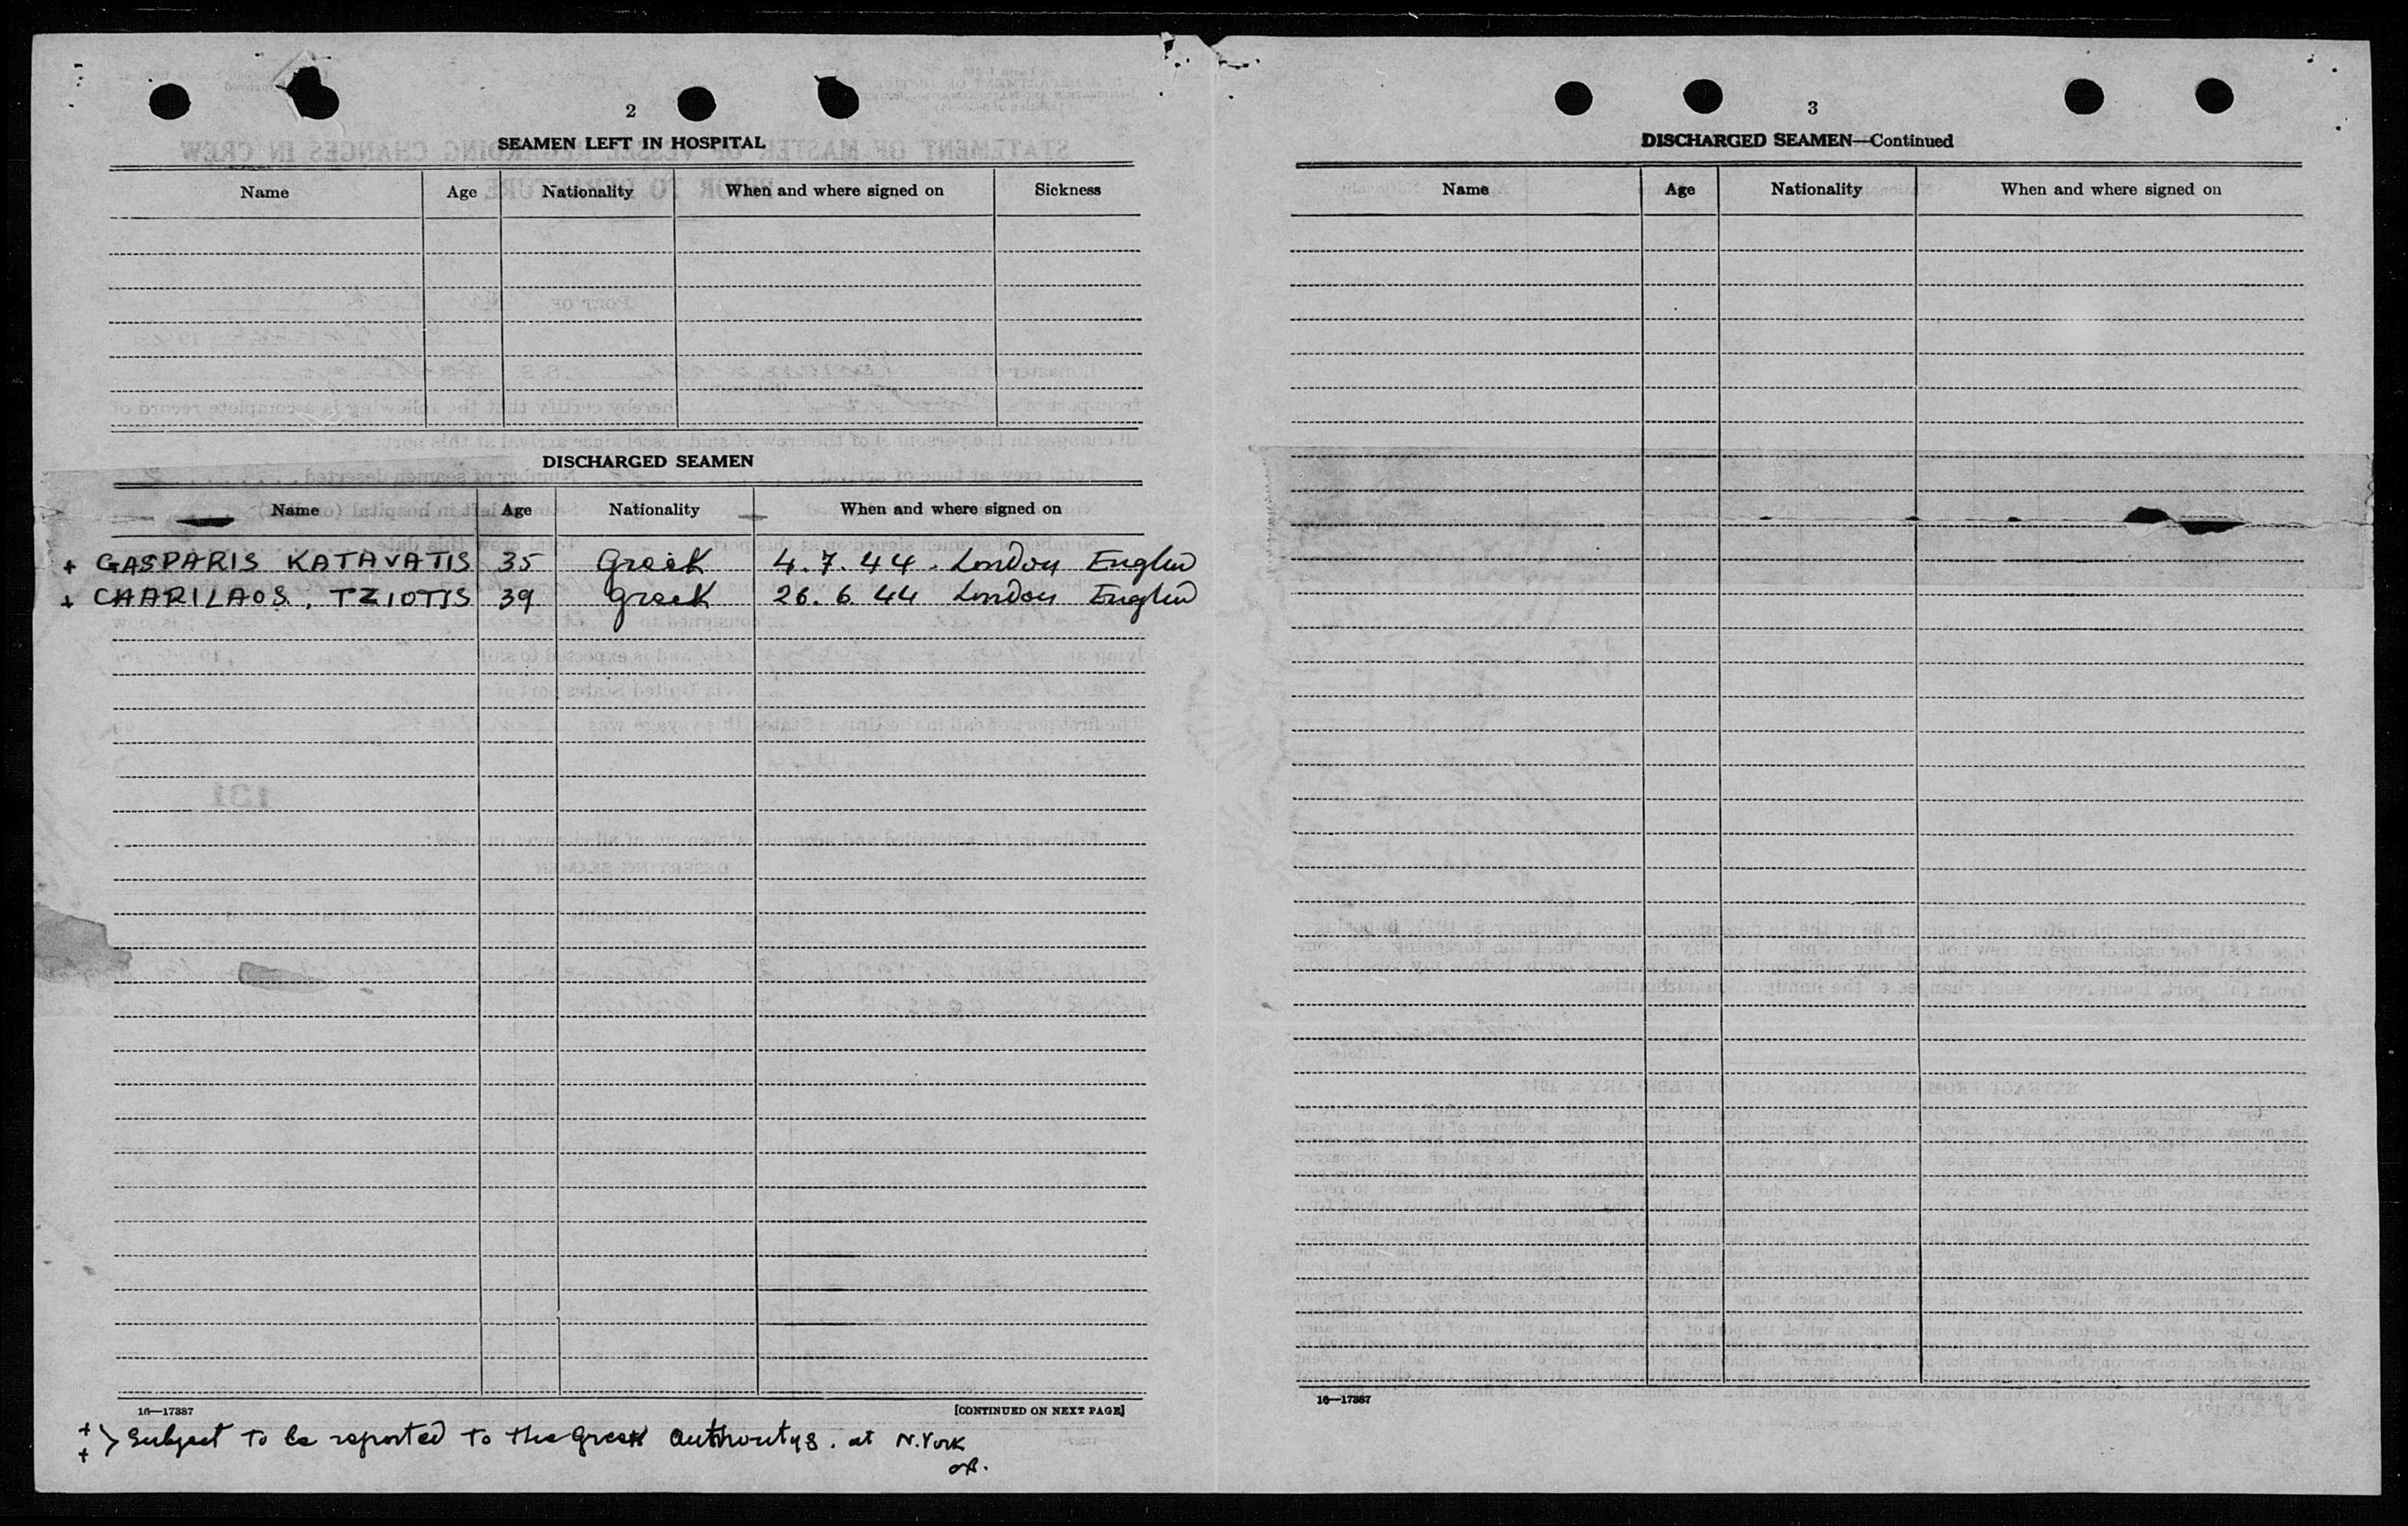 2
SEAMEN LEFT IN HOSPITAL
Name Age Nationality When and where signed on Sickness
DISCHARGED SEAMEN
Name Age Nationality When and where signed on
+ GASPARIS KATAVATIS 35 Greek 4.7.44. London
+ CHARILAOS. TZIOTIS 39 Greek 26.6.44 London
16—17387 [CONTINUED ON NEXT PAGE]
+
+ > Subject to be reported to the Greek authoritys. at N.York
3
DISCHARGED SEAMEN—Continued
Name Age Nationality When and where signed on
16—17387